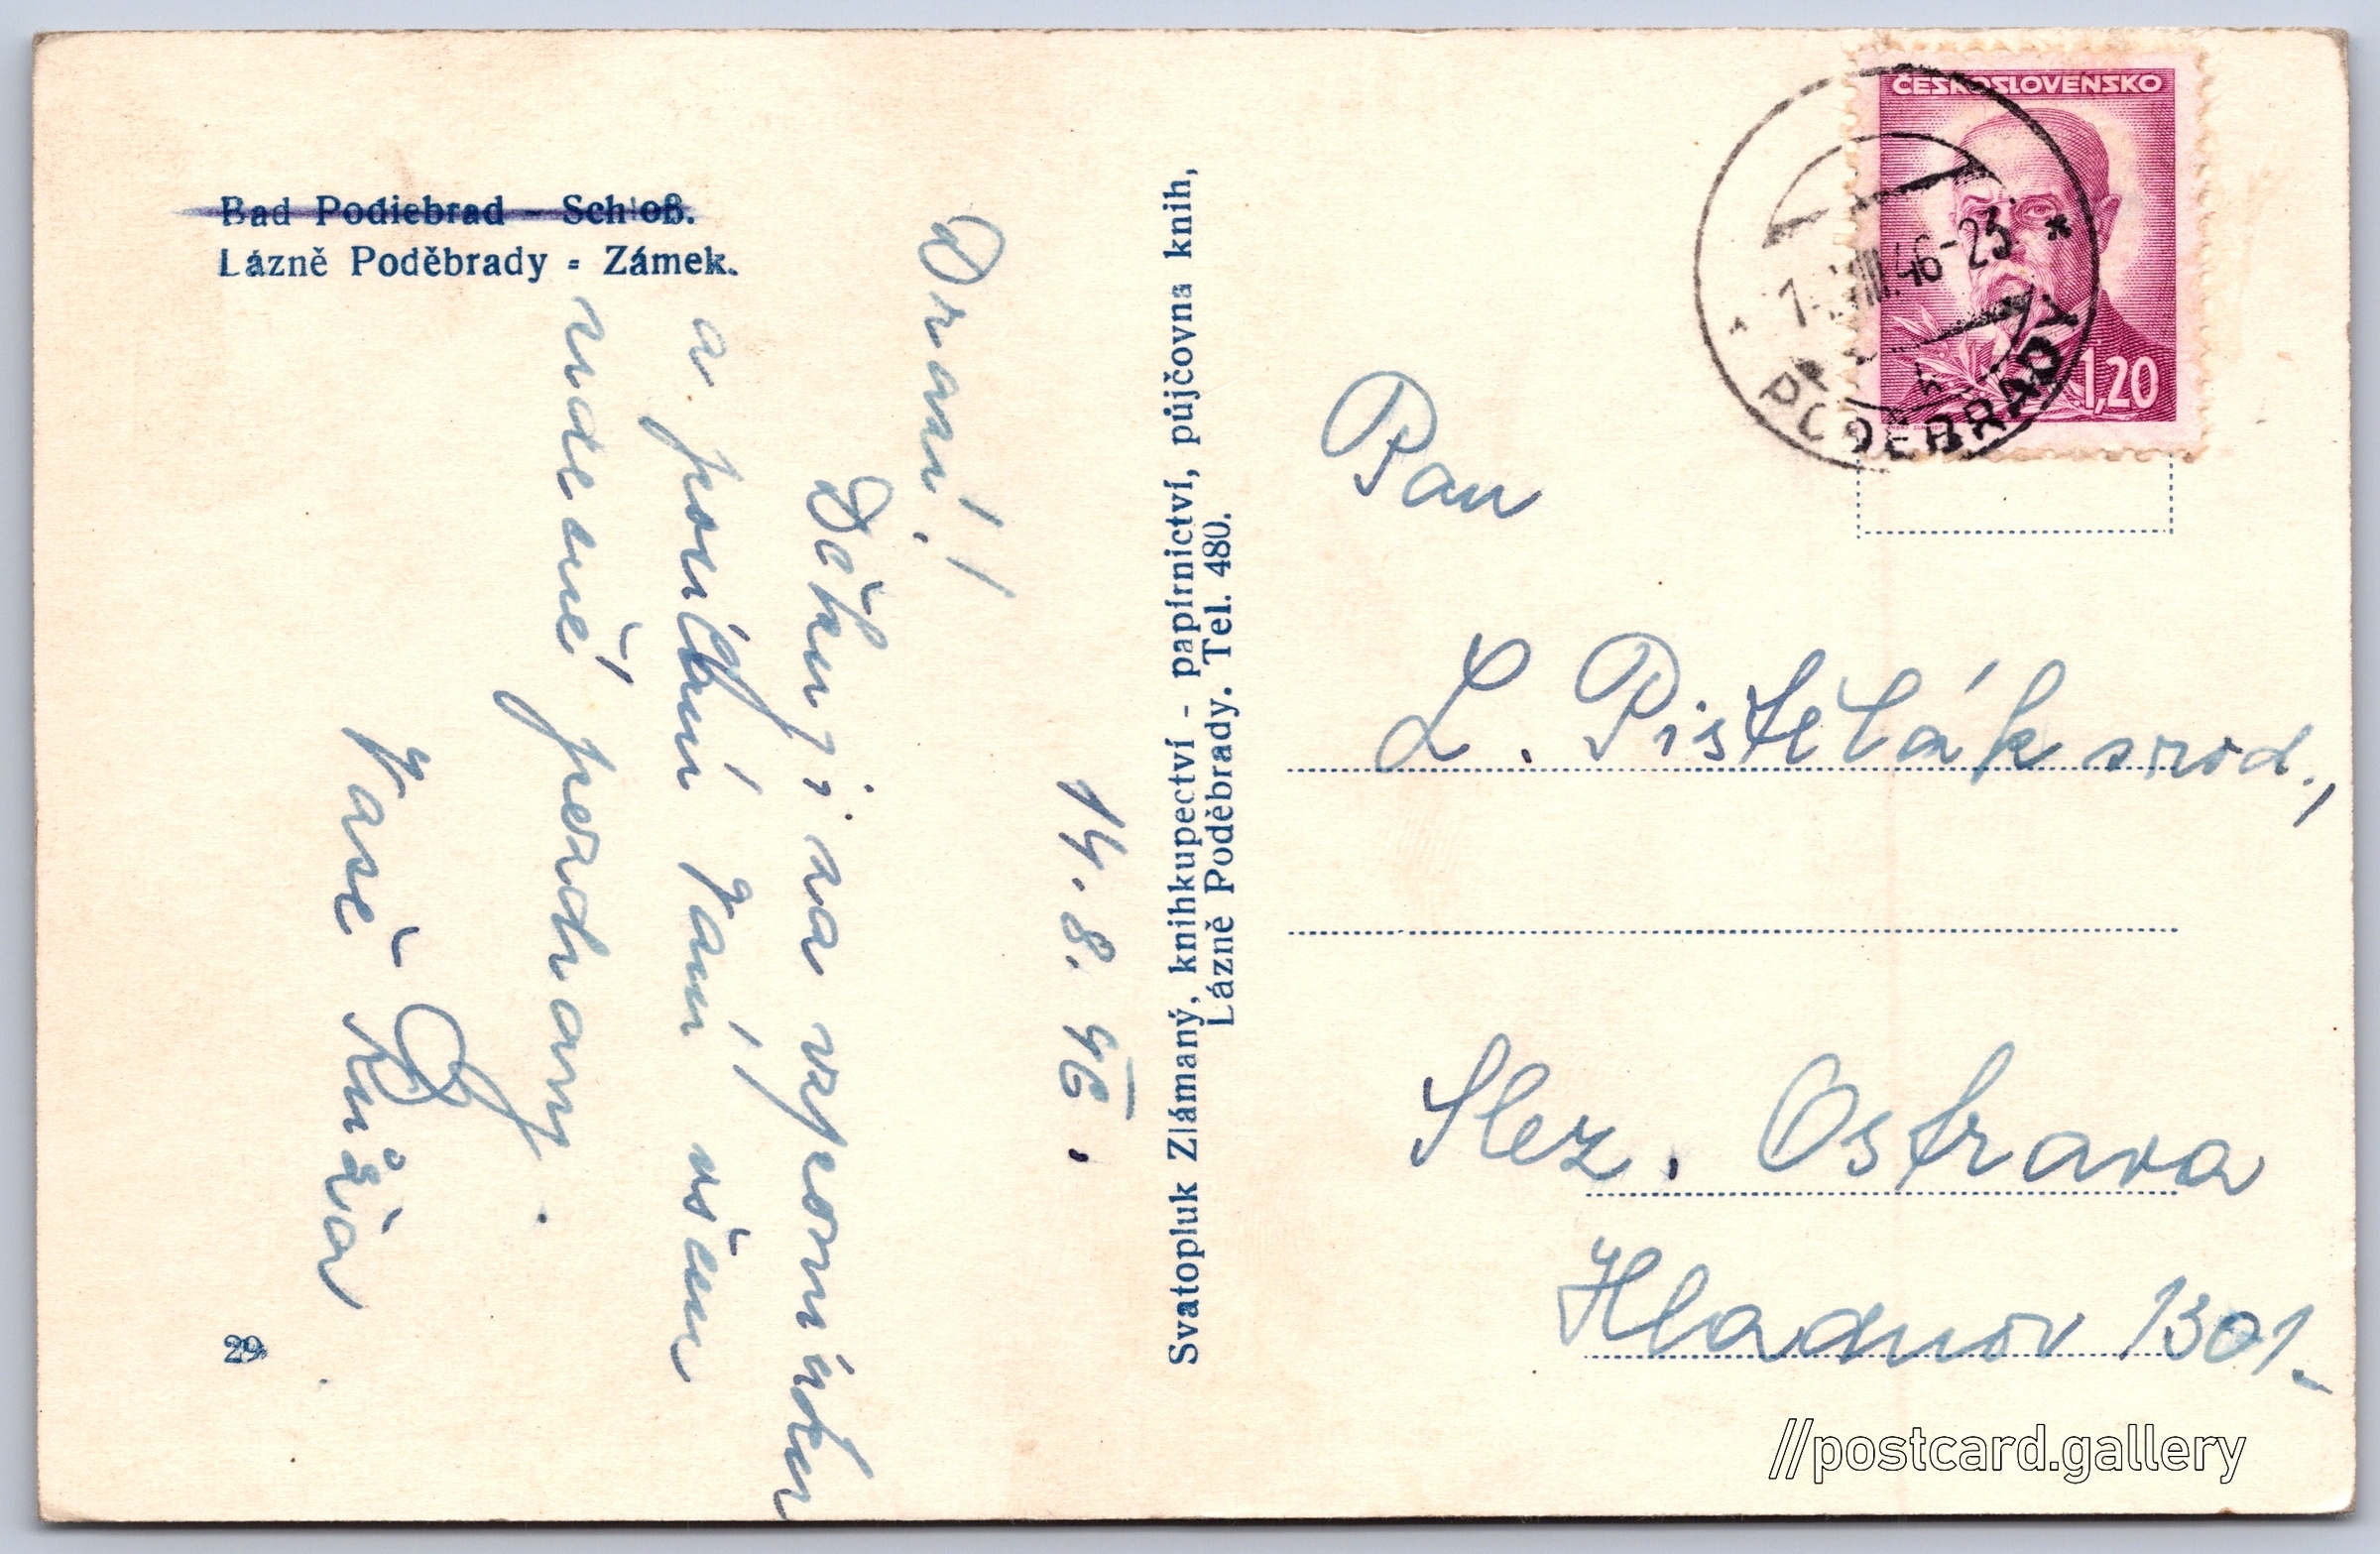 Bad Podiebrad - Schloß.
Lázně Poděbrady - Zámek.
14. 8. 46.
Drazí!
Děkuji za vzpomínku
a posílám Vám všem
srdečné pozdravy.
Vaše Růža
29
Svatopluk Zlámaný, knihkupectví - papírnictví, půjčovna knih,
Lázně Poděbrady. Tel. 480.
ČESKOSLOVENSKO
1,20
VIII.46-23
PODĚBRADY
Pan
L. Pištělák
Slez. Ostrava
Hladnov 1301.
//postcard.gallery